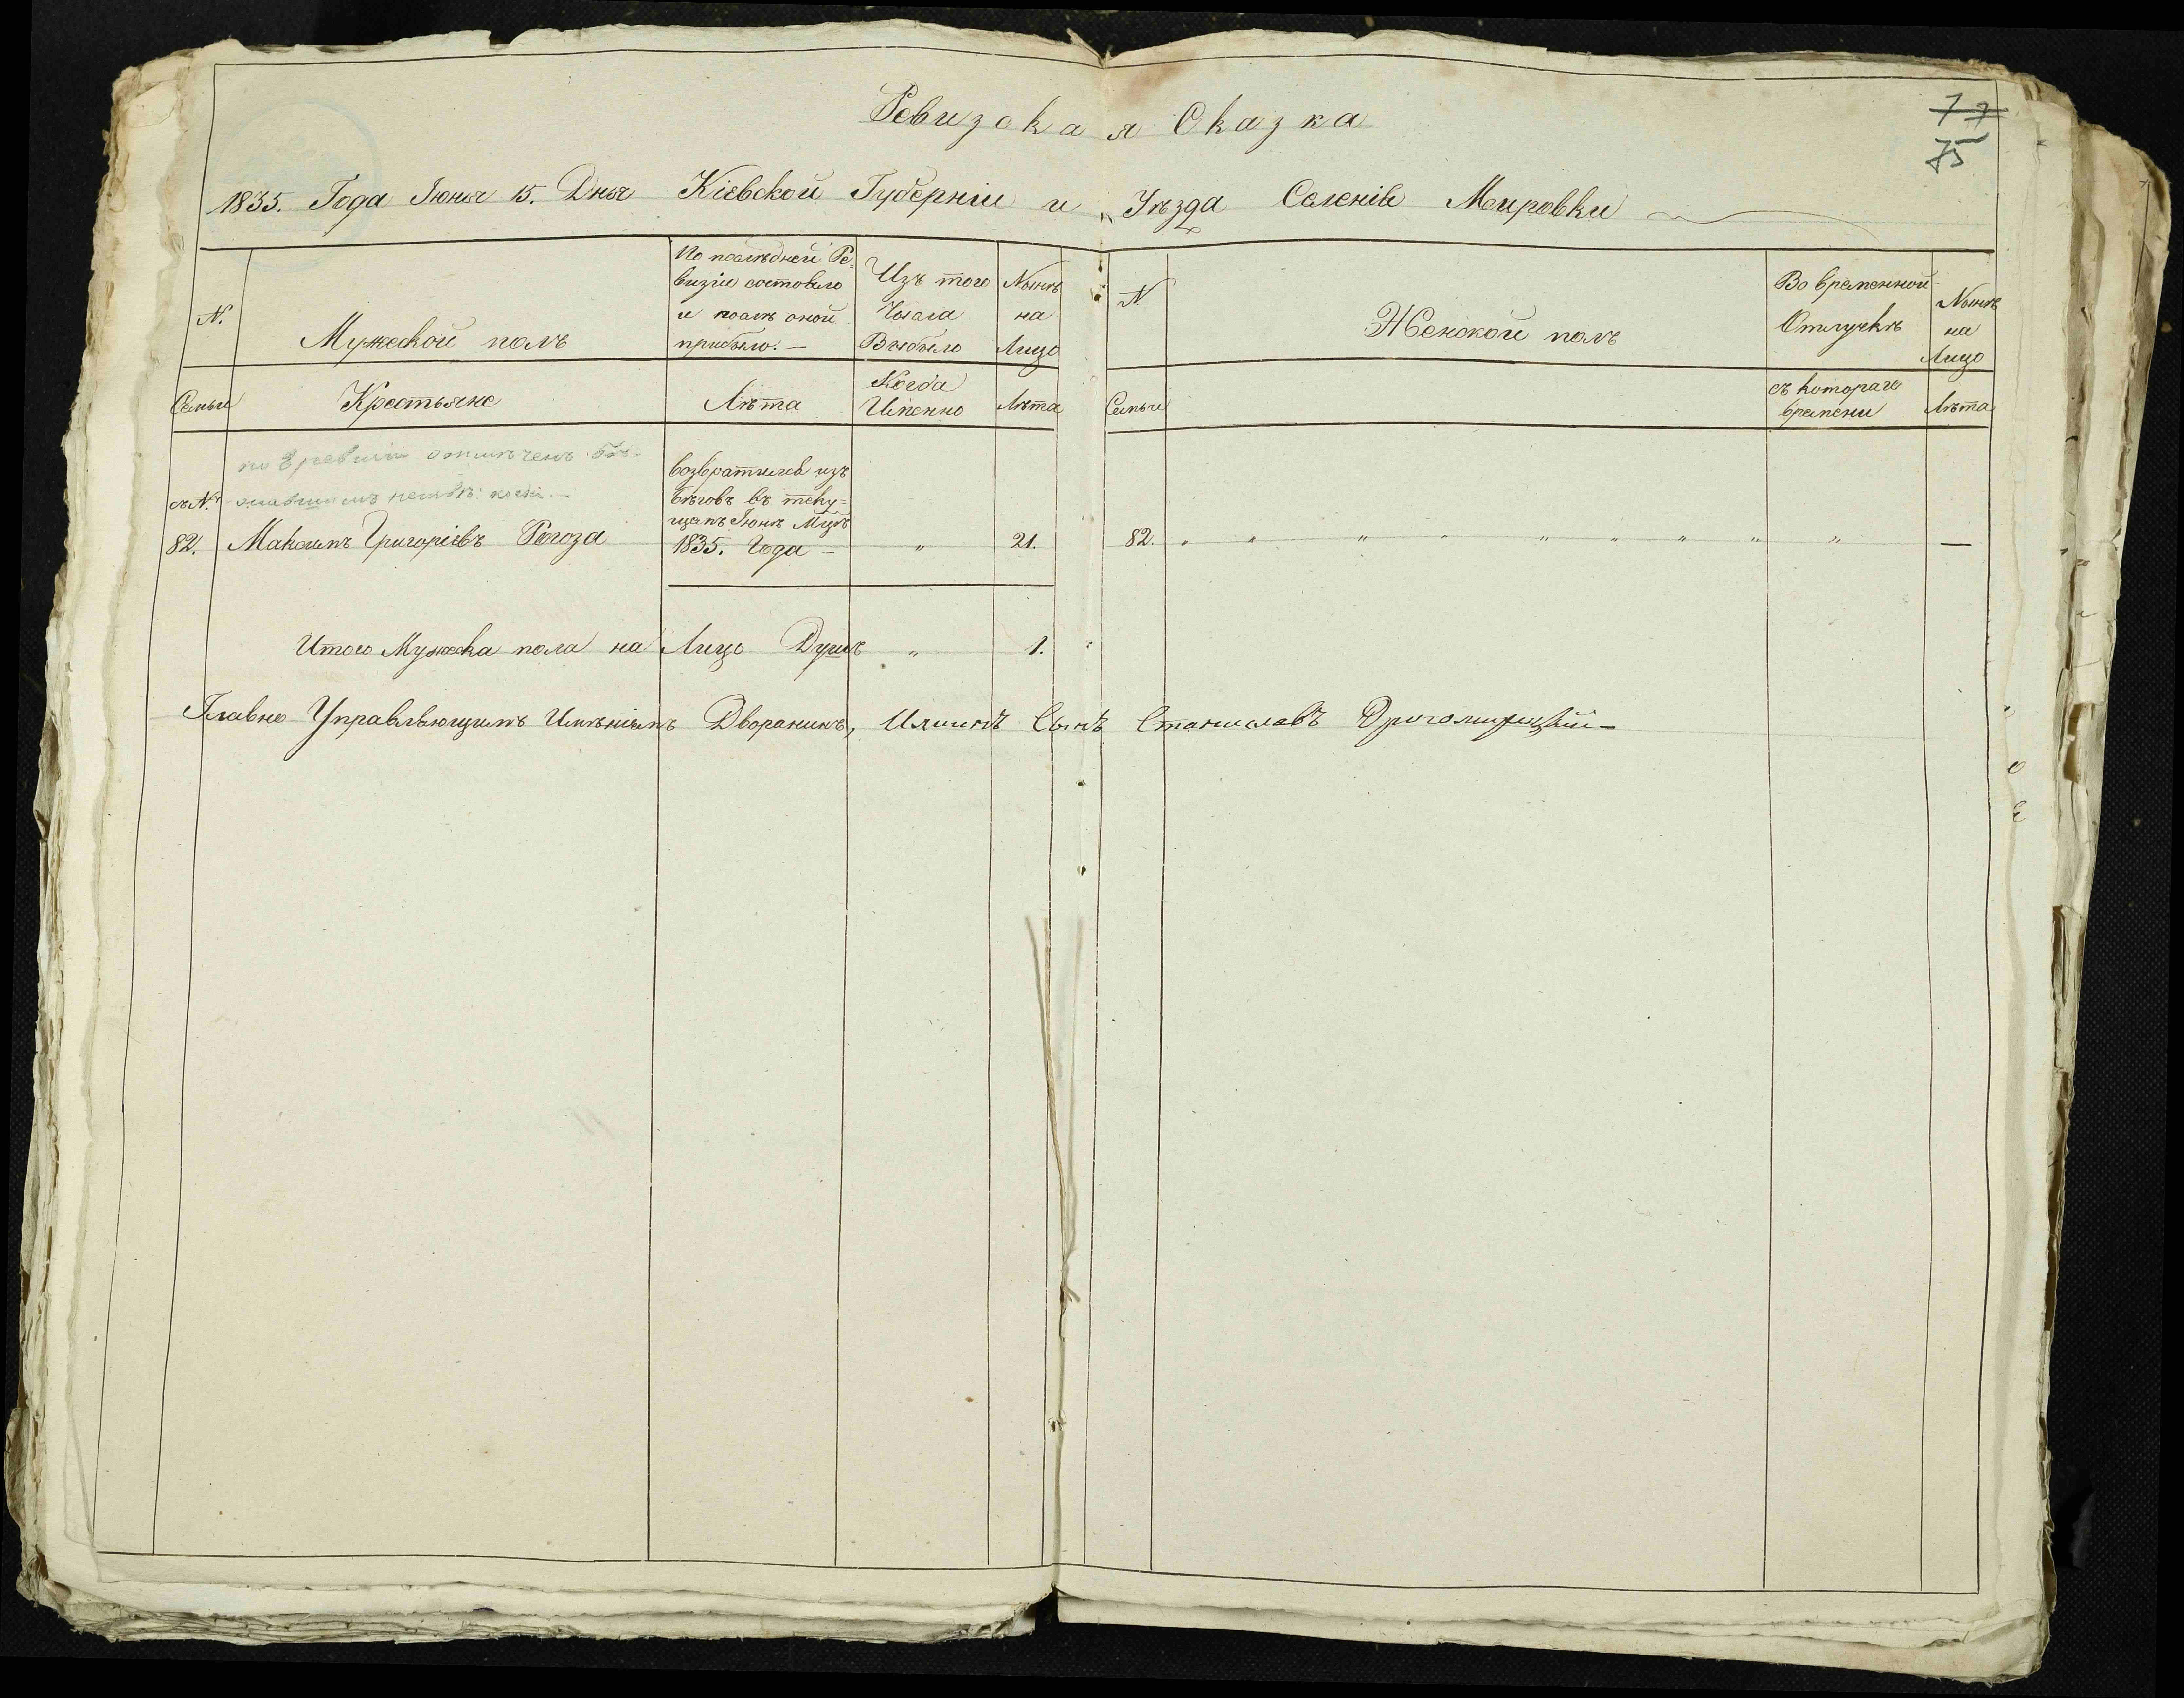 Ревизская Сказка
77
75
1835. Года Іюня 15. Дня Кіевской Губерніи и Уѣзда Селенія Мировки
N.
Мужеской полъ
По послѣдней Ре-
визіи состояло
и послѣ оной
прибыло.
Изъ того
Числа
Выбыло
Нынѣ
на
Лицо
N
Женской полъ
Во временной
Отлучкѣ
Нынѣ
на
Лицо
Семьи
Крестьяне
Лѣта
Когда
Имѣнно
Лѣта
Семьи
съ котораго
времени
Лѣта
по 8 ревизіи отмѣченъ бѣ-
жавшимъ
съ N.
82. Максимъ Григоріевъ Рогоза
возвратился изъ
бѣговъ въ теку-
щемъ Іюнѣ Мцѣ
1835. Года — „ 21.
82. „ „ „ „ „ „ „ „ „ —
Итого Мужеска пола на Лицо Душъ „ 1.
Главно Управляющимъ Имѣніемъ Дворянинъ, Сынъ Станиславъ